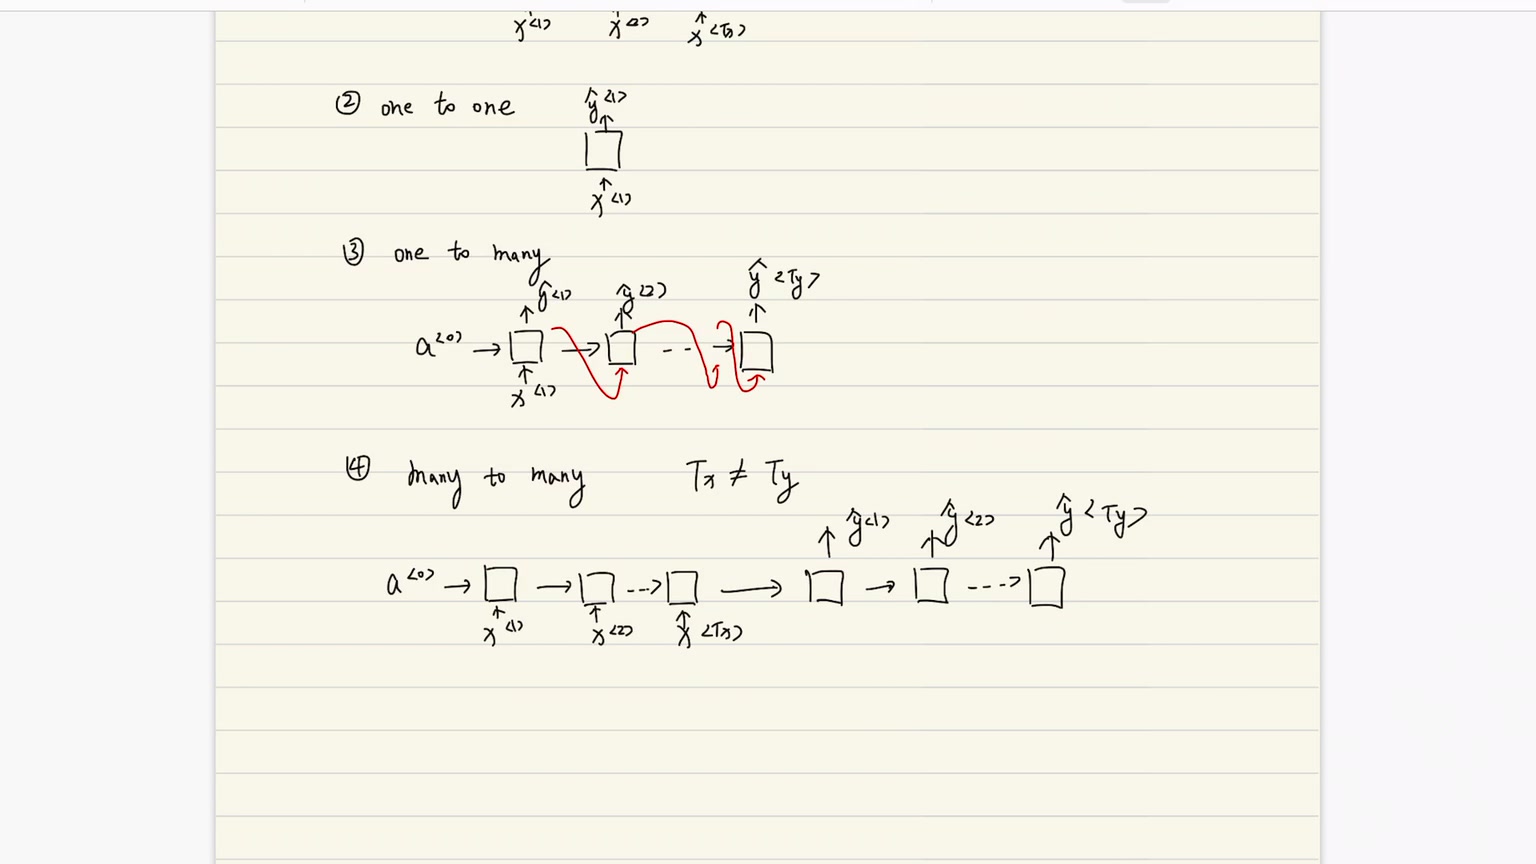 x<1> x<2> x<Tx>
② one to one
ŷ<1>
x<1>
③ one to many
ŷ<1> ŷ<2> ŷ<Ty>
a<0>
x<1>
④ many to many Tx ≠ Ty
ŷ<1> ŷ<2> ŷ<Ty>
a<0>
x<1> x<2> x<Tx>